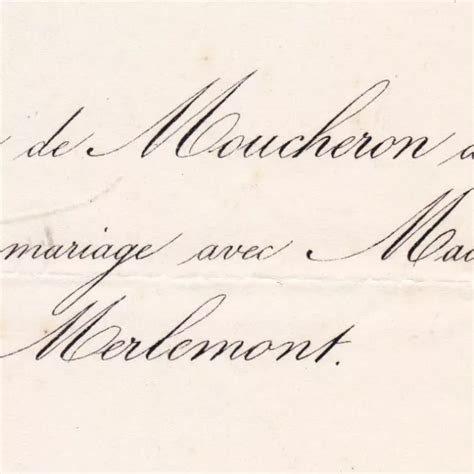 de Moucheron
mariage avec Mad
Merlemont.